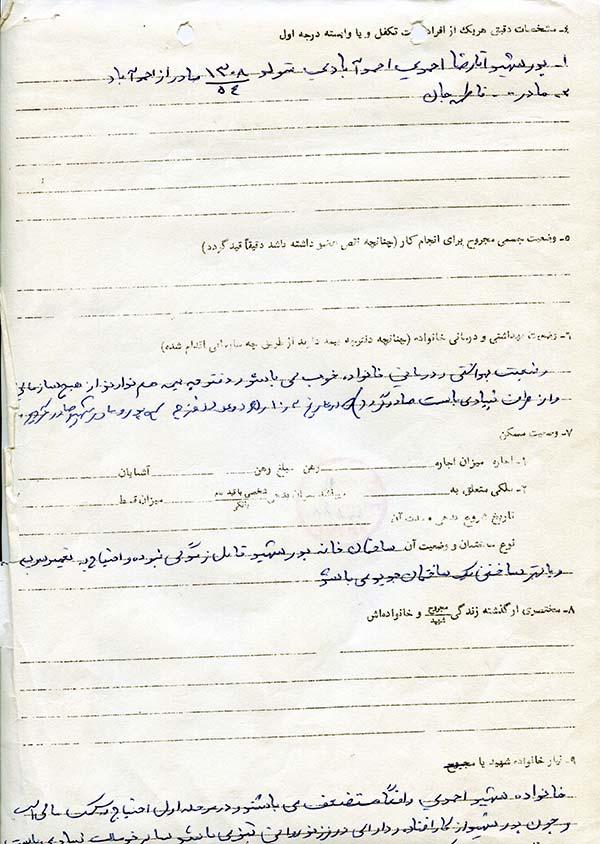 ۴- مشخصات دقیق هریک از افراد تحت تکفل و یا وابسته درجه اول
۱- پدر شهید آقارضا احمدی احمدآبادی متولد ۱۳۰۸ صادر از احمدآباد
۵۴
۲- مادر - فاطمه جان
۵- وضعیت جسمی مجروح برای انجام کار (چنانچه نقص عضو داشته باشد دقیقاً قید گردد)
۶- وضعیت بهداشتی و درمانی خانواده (چنانچه دفترچه بیمه دارند از طریق چه سازمانی اقدام شده)
وضعیت بهداشتی و درمانی خانواده خوب می باشد و دفترچه بیمه هم ندارند از هیچ سازمانی
و از طرف بنیادی بایست صادر گردد
۷- وضعیت مسکن
۱- اجاره میزان اجاره رهن مبلغ رهن آشنایان
۲- ملکی متعلق به میباشد میزان بدهی شخصی با قید نام میزان قسط
بانکی
تاریخ شروع بدهی و مدت آن
نوع ساختمان و وضعیت آن ساختمان خانه پدر شهید قابل زندگی نبوده و احتیاج به تعمیر
و یا بهتر ساختن یک ساختمان جدید می باشد
۸- مختصری از گذشته زندگی مجروح و خانواده‌اش
شهید
۹- نیاز خانواده شهید یا مجروح
خانواده شهید احمدی واقعاً مستضعف می باشند و در مرحله اول احتیاج به کمک مالی است
و چون پدر شهید از کار افتاده و دارای